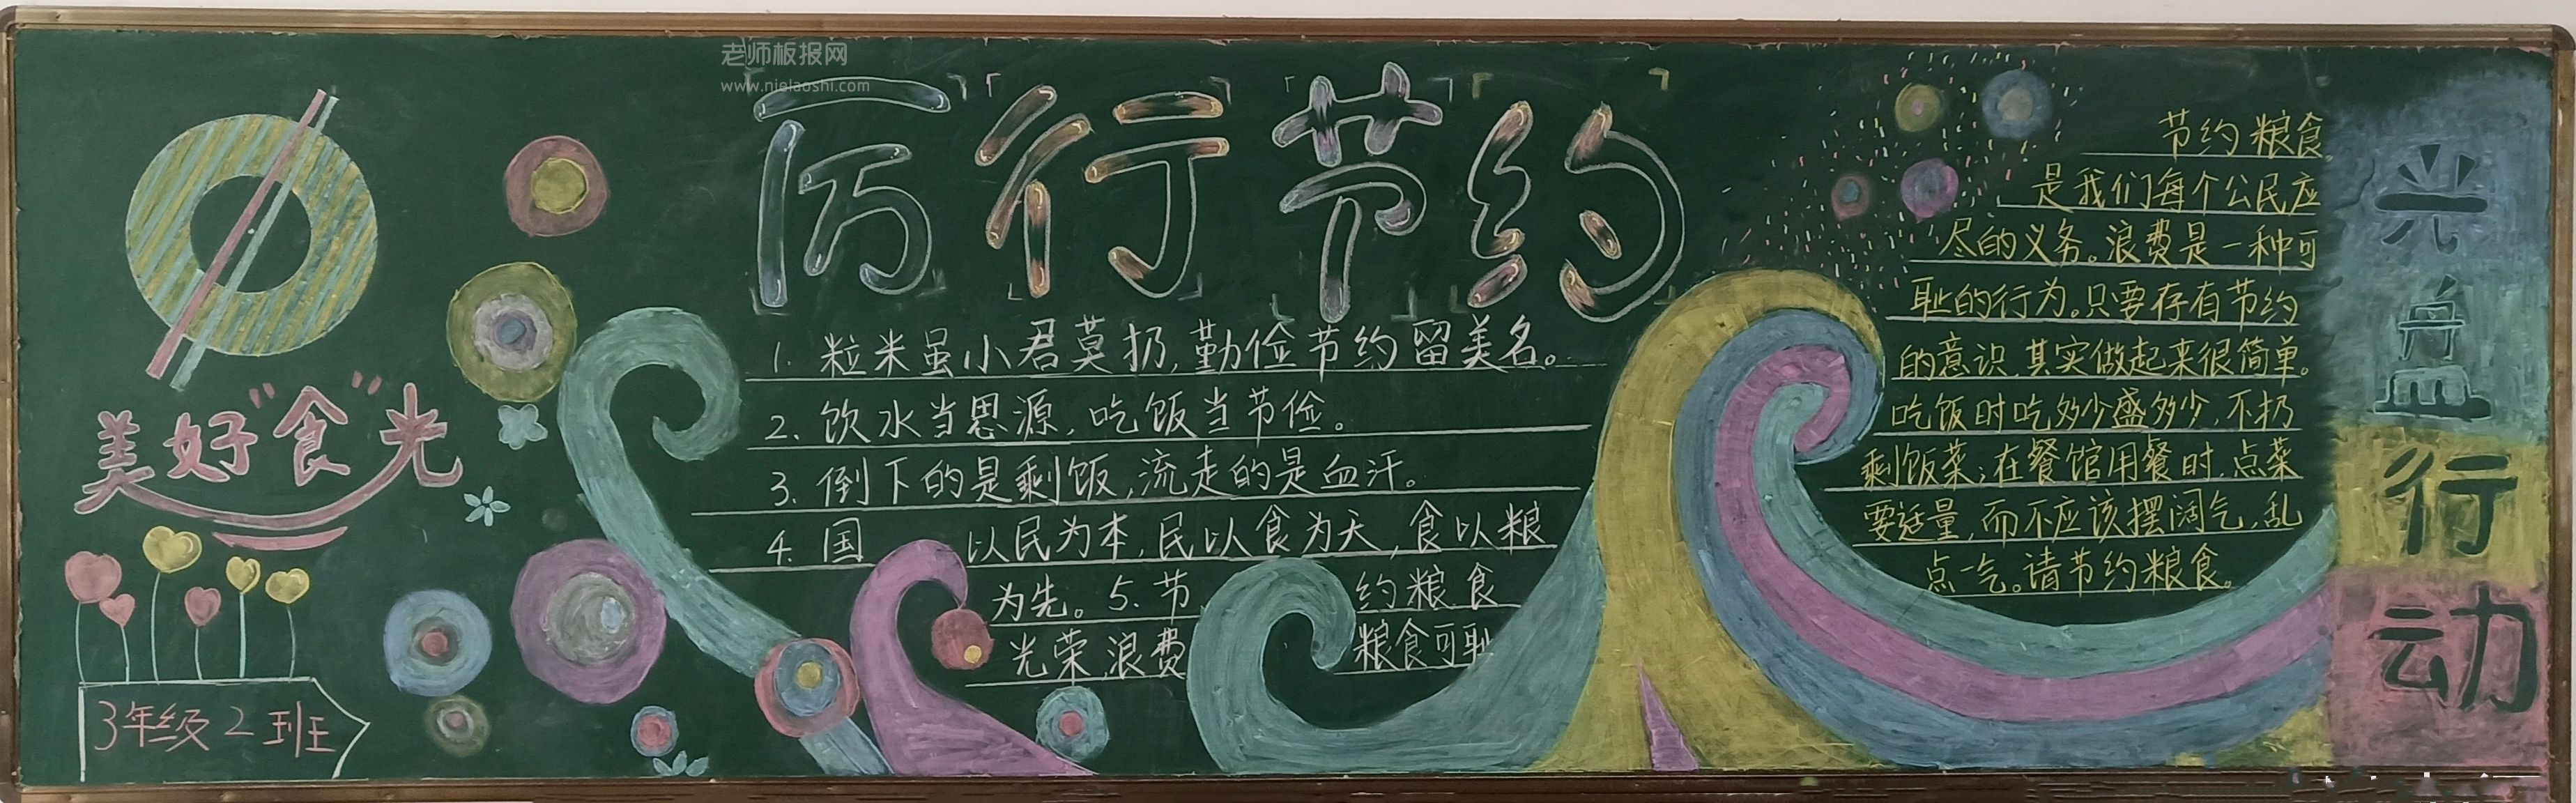 老师板报网
www.nielaoshi.com
厉行节约
美好“食”光
3年级2班
1. 粒米虽小君莫扔,勤俭节约留美名。
2. 饮水当思源,吃饭当节俭。
3. 倒下的是剩饭,流走的是血汗。
4. 国 以民为本,民以食为天,食以粮
为先。5. 节 约粮食
光荣 浪费 粮食可耻
节约粮食
是我们每个公民应
尽的义务。浪费是一种可
耻的行为。只要存有节约
的意识,其实做起来很简单。
吃饭时吃多少盛多少,不扔
剩饭菜;在餐馆用餐时,点菜
要适量,而不应该摆阔气,乱
点一气。请节约粮食。
光盘行动